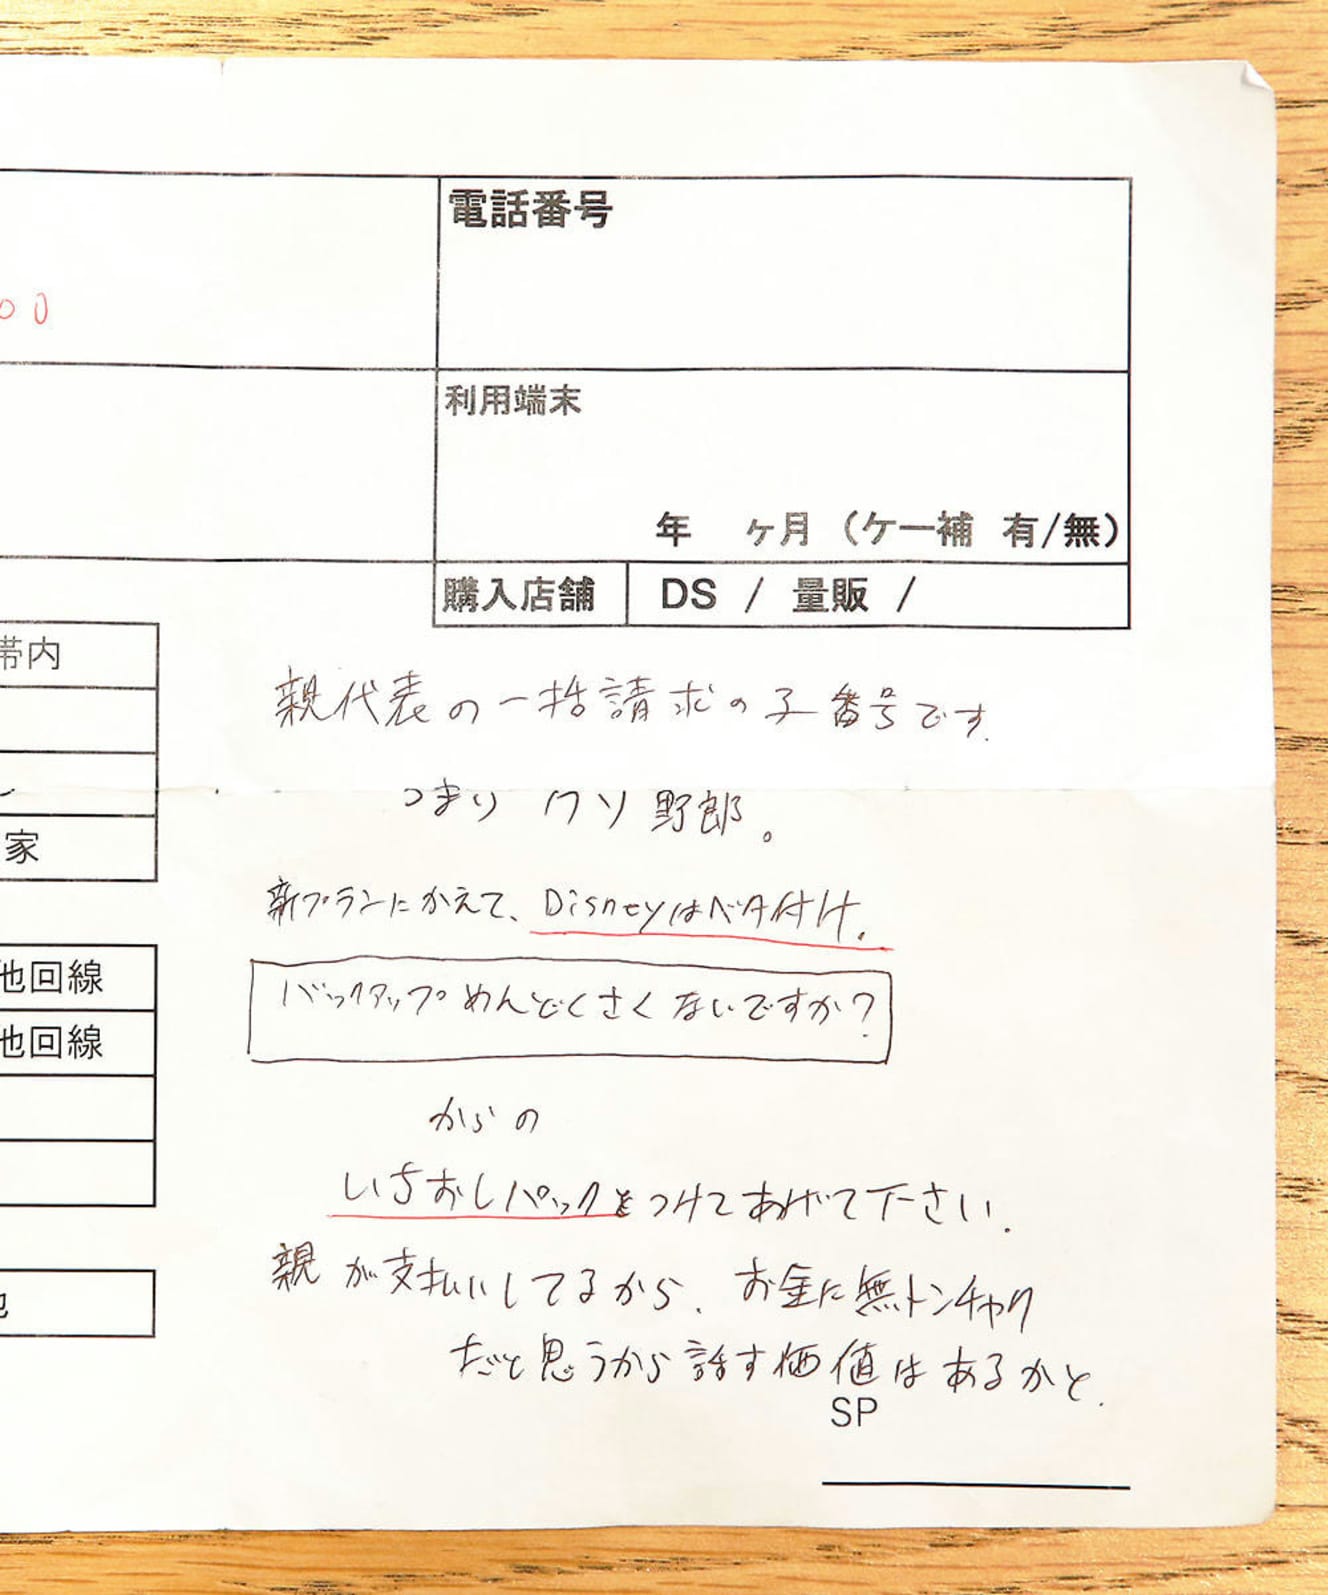 電話番号
00
利用端末
年 ヶ月（ケー補 有/無）
購入店舗 DS / 量販 /
帯内
親代表の一括請求の子番号です.
つまり クソ野郎。
家
新プランにかえて、Disneyはベタ付け.
他回線
バックアップめんどくさくないですか?
他回線
からの
いちおしパックをつけてあげて下さい.
親が支払いしてるから、お金に無トンチャク
だと思うから話す価値はあるかと.
SP